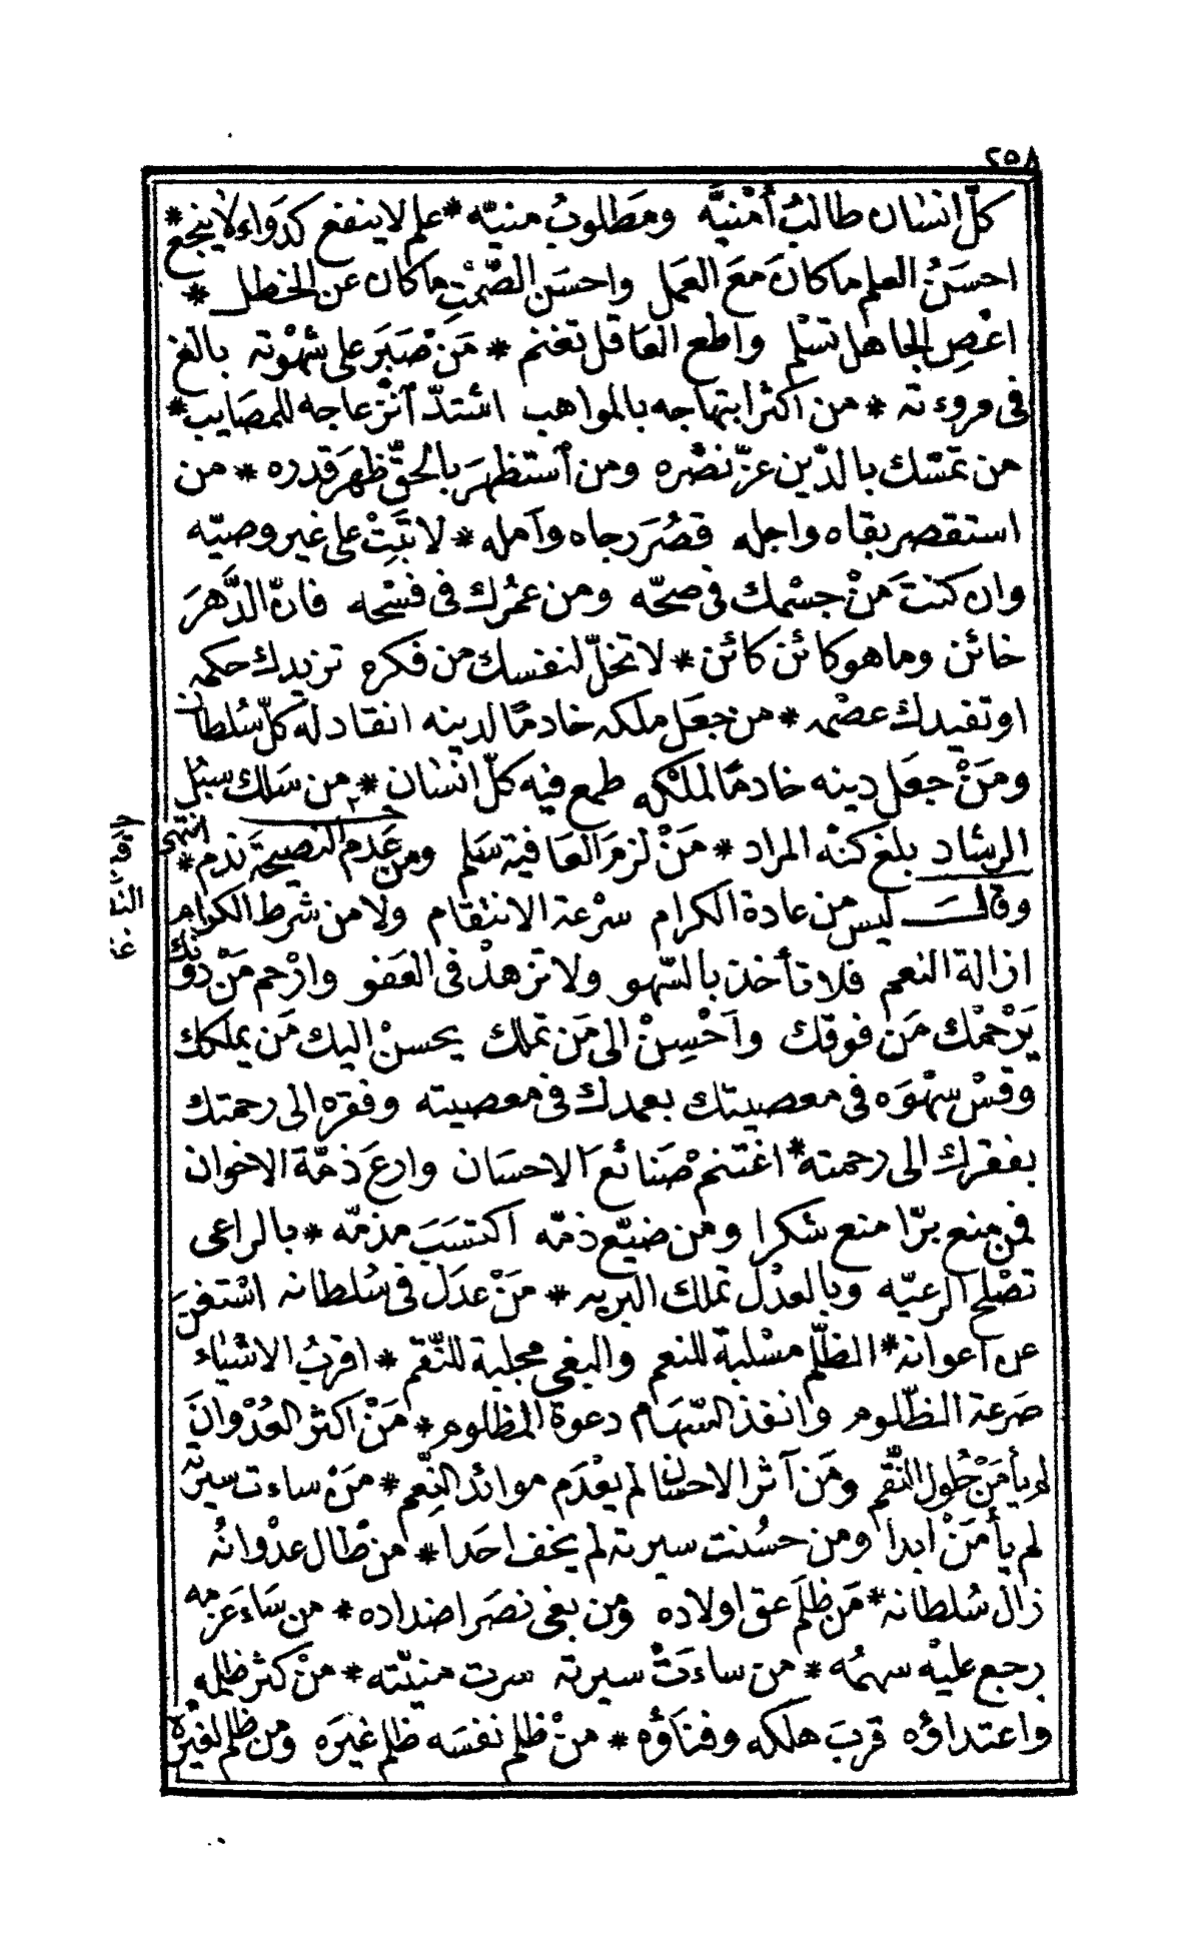 ٢٥٨
كلّ انسان طالبُ أمْنيَّه ومَطلوبُ منيّه * علم لا ينفع كدَواء لا ينجع *
احسَنُ العلم ما كانَ مَعَ العَمل واحسَن الصَّمْتِ ما كان عن الخطل *
اعْصِ الجاهل تسْلم واطع العَاقل تغنم * مَنْ صَبَرَ على شهْوته بالغ
فى مروءته * من اكثر ابتهاجه بالمواهب اشتدّ انْزعاجه للمصَايب *
من تمسّك بالدّين عزّ نصْره ومن ٱستظهَرَ بالحقّ ظهَرَ قدره * من
استقصر بقاه واجله قصُرَ رجاه وآمله * لا تَبِتْ على غير وصيّه
وان كنتَ مَنْ جسْمك فى صحّه ومن عمُرك فى فسْحه فانّ الدَّهرَ
خائن وما هو كائن كائن * لا تخلّ لنفسك من فكره تزيدك حكمه
او تفيدك عصْمه * من جعَل ملكه خادمًا لدينه انقاد له كلّ سُلطان
ومَنْ جعَل دينه خادمًا لملكه طمع فيه كلّ انْسَان * من سَلك سبُل
الرشاد بلغ كنْه المراد * مَنْ لزمَ العَافية سَلم ومن عَدم النصيحَة ندم * انتهى
وقالــــ ليس من عادة الكرام سرْعة الانتقام ولا من شرط الكرام
ازالة النعم فلا تأخذ بالسّهو ولا تزهدْ فى العَفو وارْحم مَنْ دونك
يَرْحمْك مَن فوقك واَحْسِنْ الى مَن تملك يحسنْ اليك مَن يملكك
وقسْ سهْوَه فى معصيتك بعمدك فى معصيته وفقره الى رحمتك
بفقرك الى رحمته * اغتنمْ صَنائعَ الاحسَان وارعَ ذمّة الاخوان
فمن منع برّا منع شكرا ومن ضيّع ذمّه اكتسَبَ مذمّه * بالراعى
تصْلح الرعيّه وبالعدْل تملك البريه * مَنْ عدَل فى سُلطانه اسْتغنى
عن اَعوانه * الظّلم مسْلبة للنعم والبغى مجلبة للنّقم * اقربُ الاشياء
صَرعة الظّلوم وانفذ السّهَام دعوة المظلوم * مَنْ اكثر العُدْوانَ
لم يأمَنْ حُلول النّقم ومَن آثر الاحسان لم يعْدَم موائد النِّعم * مَنْ ساءت سيرته
لم يأمَنْ ابدا ومن حسُنت سيرته لم يخف احَدا * من طال عدْوانُه
زال سُلطانه * مَن ظلَم عق اولاده ومن بغى نصَر اضداده * من سَاء عَزمه
رجع عليْه سهمُه * من ساءَتْ سيرته سرت منيّته * منْ كثر ظلمه
واعتداؤه قربَ هلكه وفناؤه * منْ ظلم نفسَه ظلم غيرَه ومن ظلم لغيْره